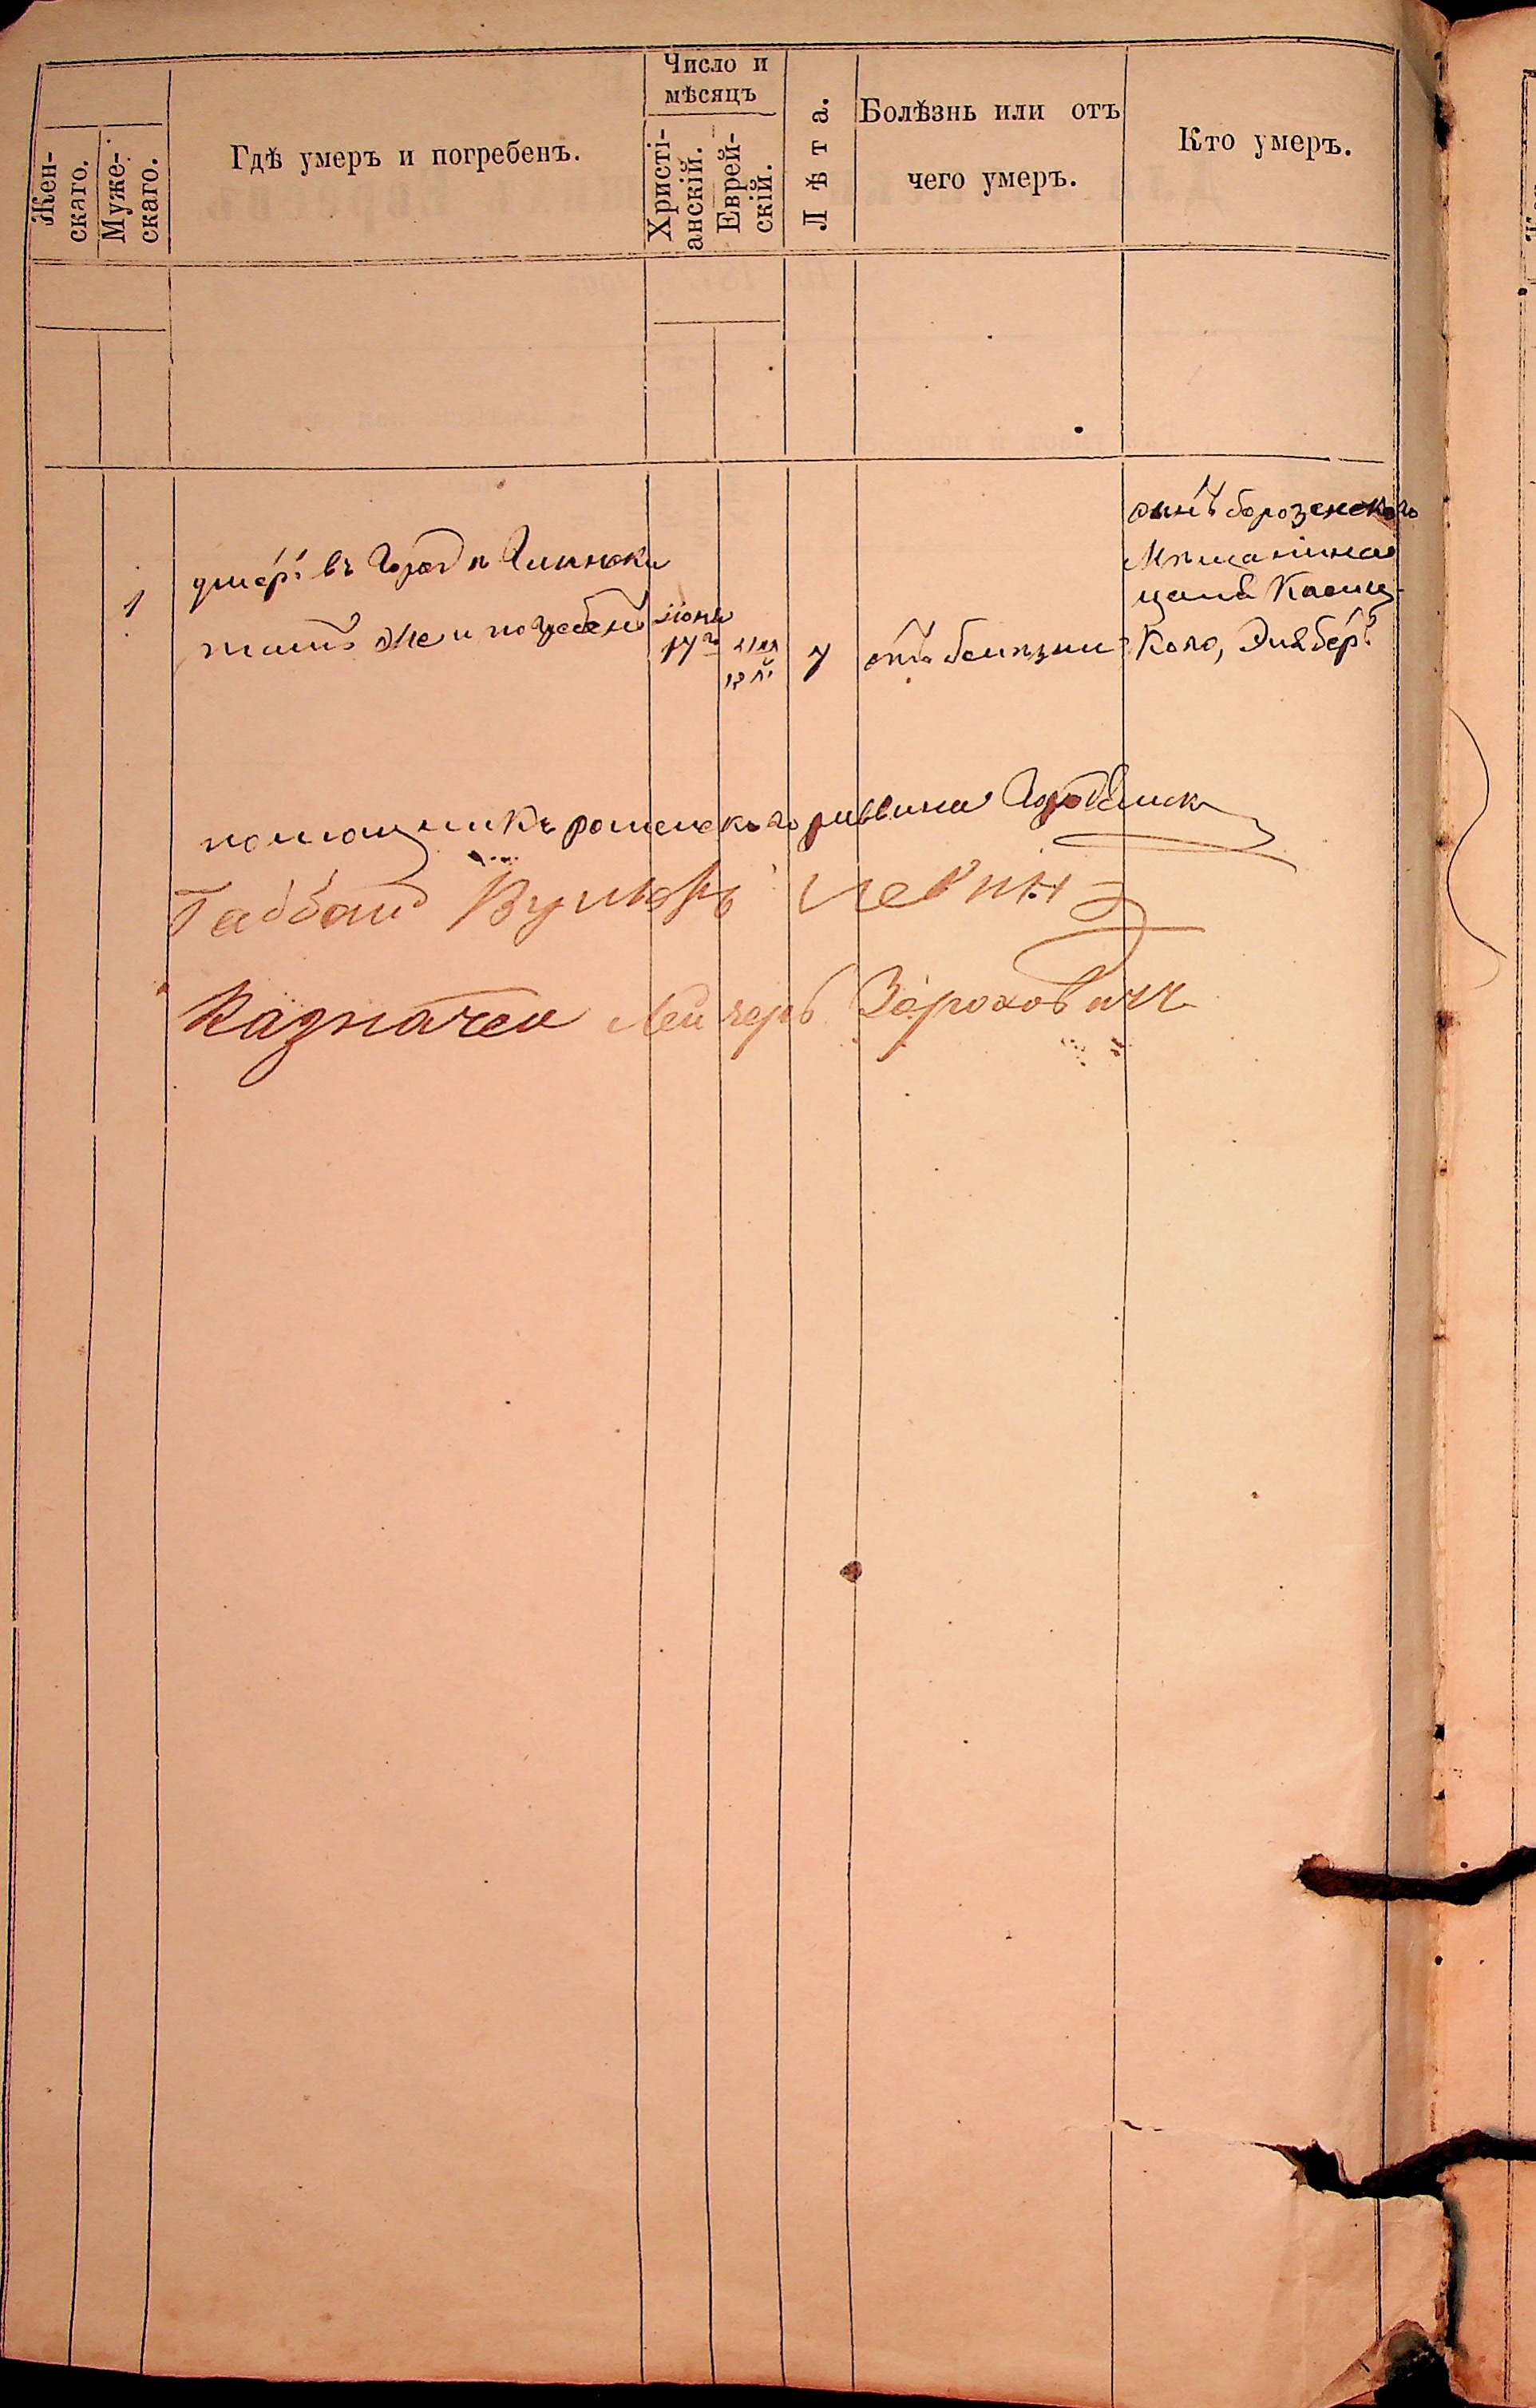 Число и
мѣсяцъ
Жен-
скаго.
Муже-
скаго.
Гдѣ умеръ и погребенъ.
Христі-
анскій.
Еврей-
скій.
Лѣта.
Болѣзнь или отъ
чего умеръ.
Кто умеръ.
1
умеръ въ Городѣ Глинске
тамъ же и погребенъ
іюня
17го
7
отъ болѣзни
сынъ борозенского
Мѣщанина
помощникъ роменского раввина
Габбай Вульфъ Левинъ
Казначей Лейзеръ Зороховичъ